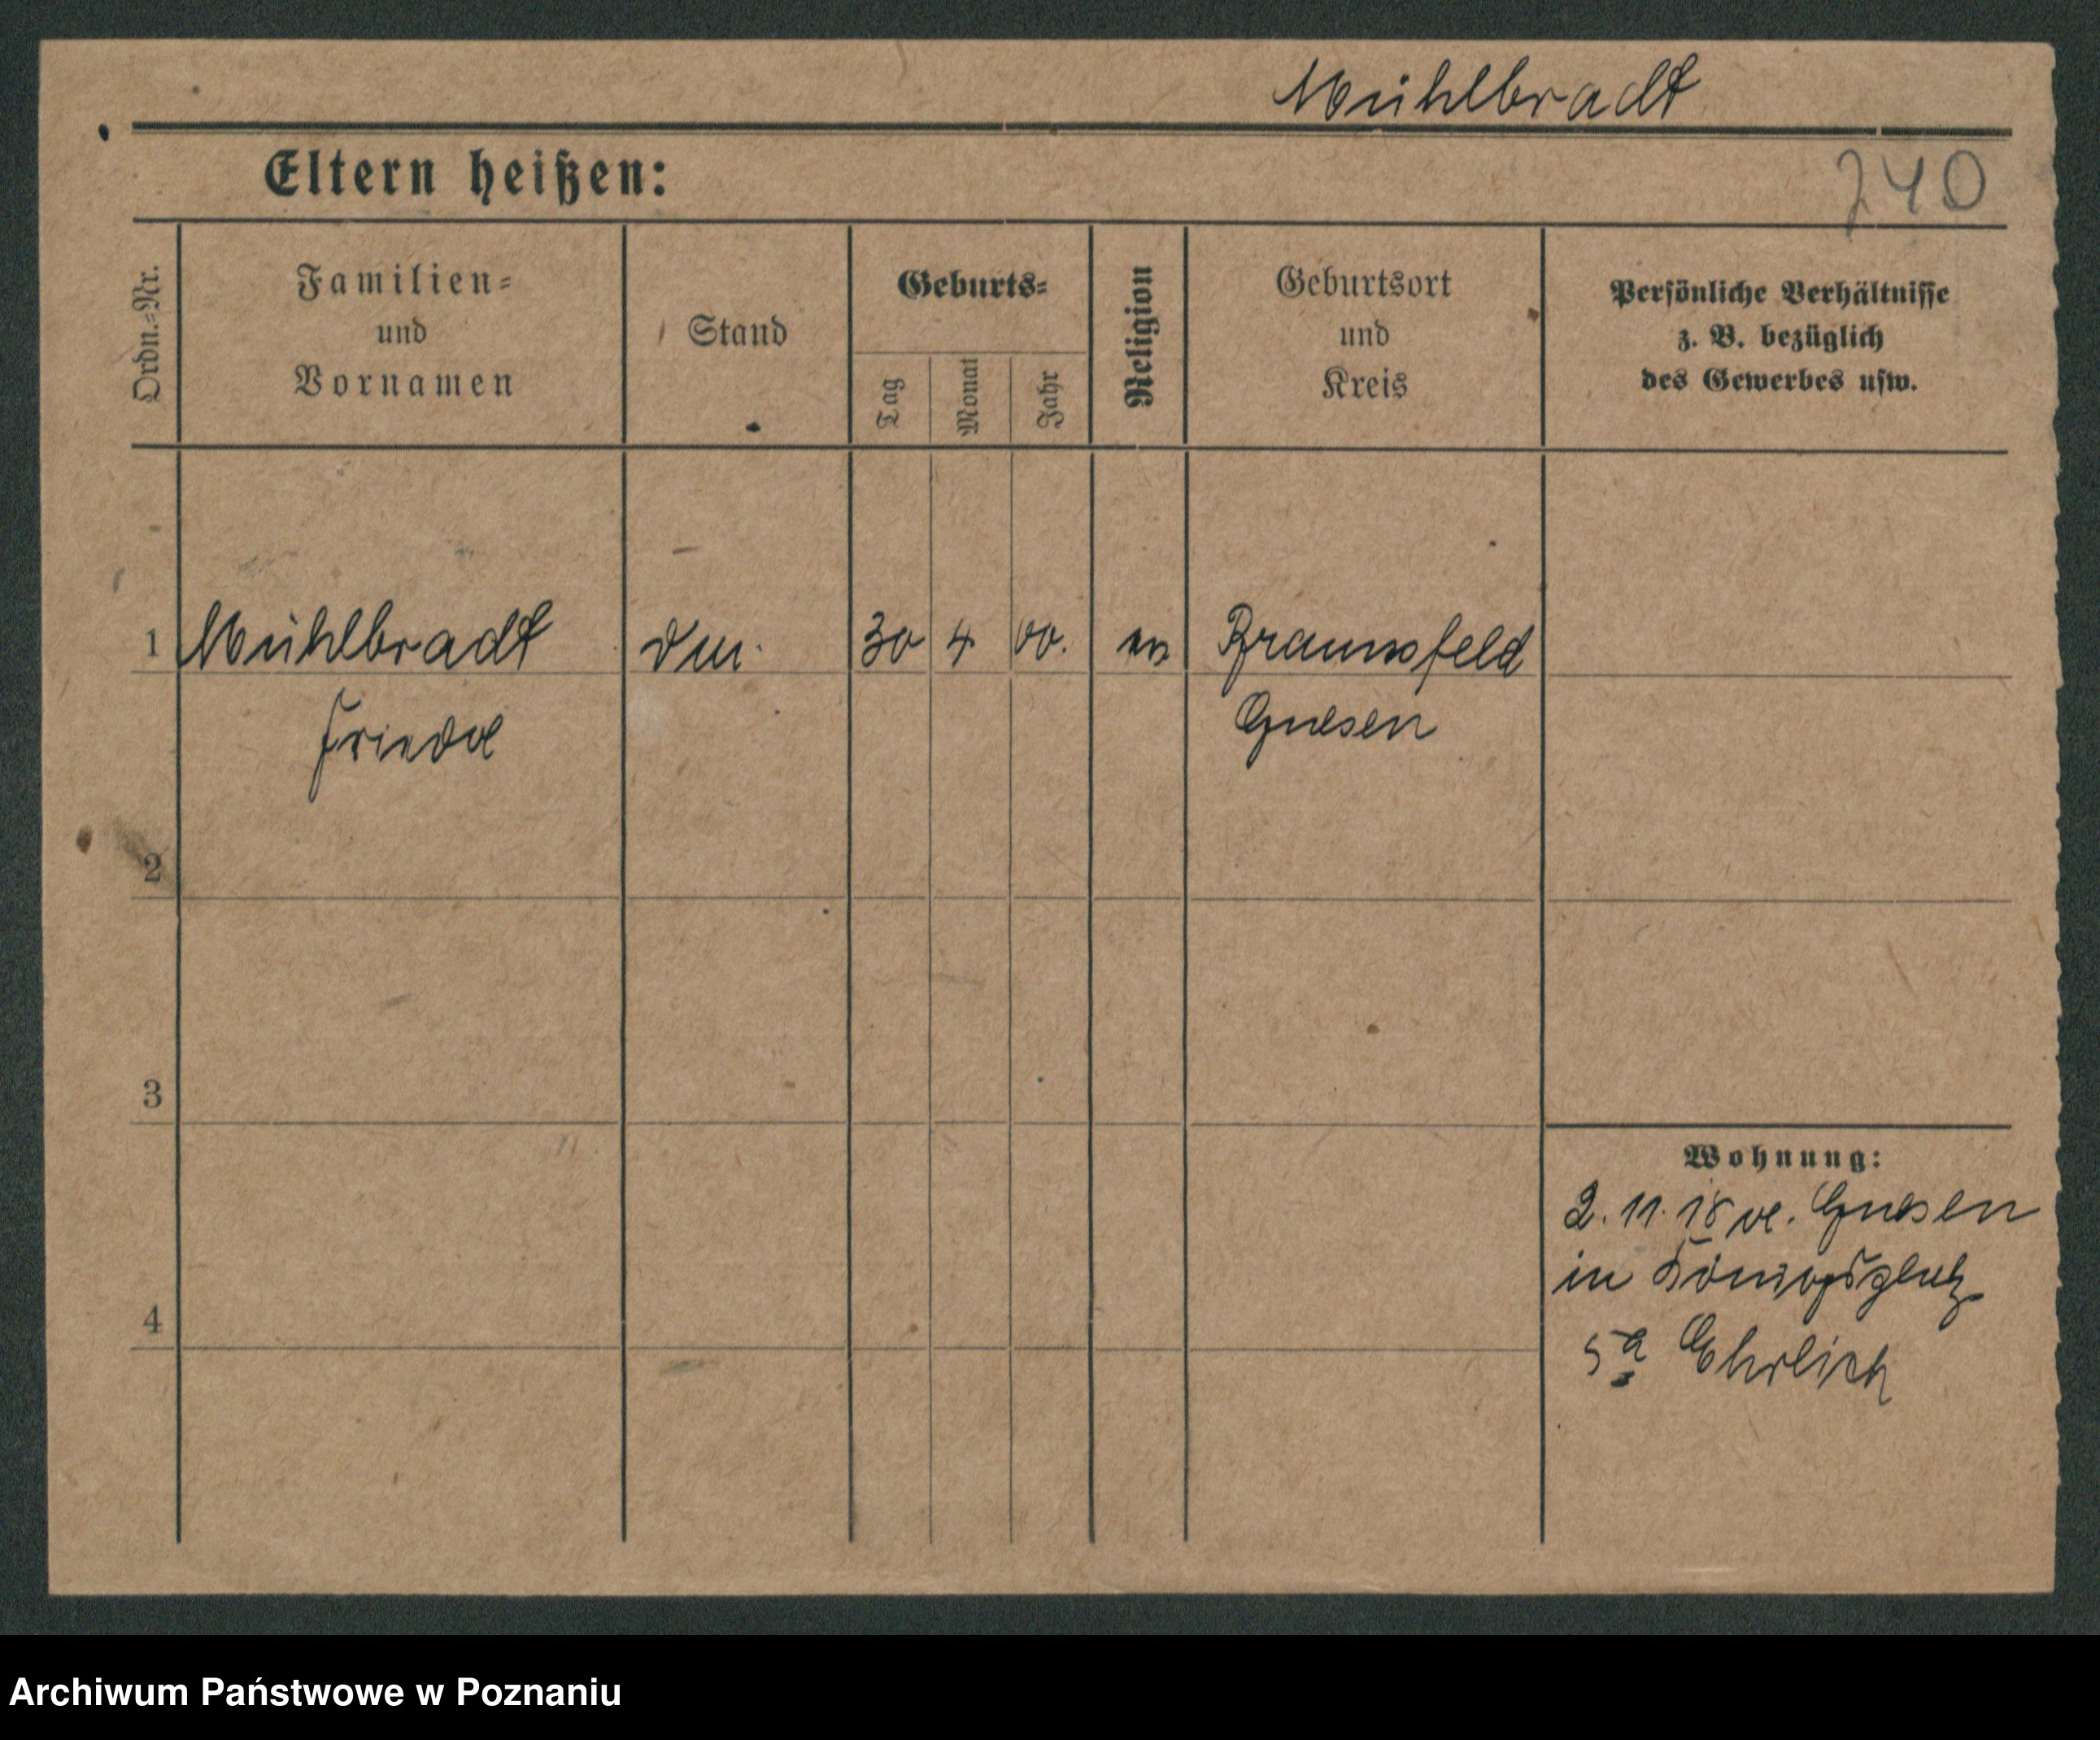 Mühlbradt
Eltern heißen:
240
Ordn.=Nr.
Familien=
und
Vornamen
Stand
Geburts=
Tag
Monat
Jahr
Religion
Geburtsort
und
Kreis
Persönliche Verhältnisse
z. B. bezüglich
des Gewerbes usw.
1 Mühlbradt 30 4 00. Braunsfeld
Friede Gnesen
2
3
Wohnung:
2. 11. 18 Gnesen
in Königsplatz
4
5a Ehrlich
Archiwum Państwowe w Poznaniu